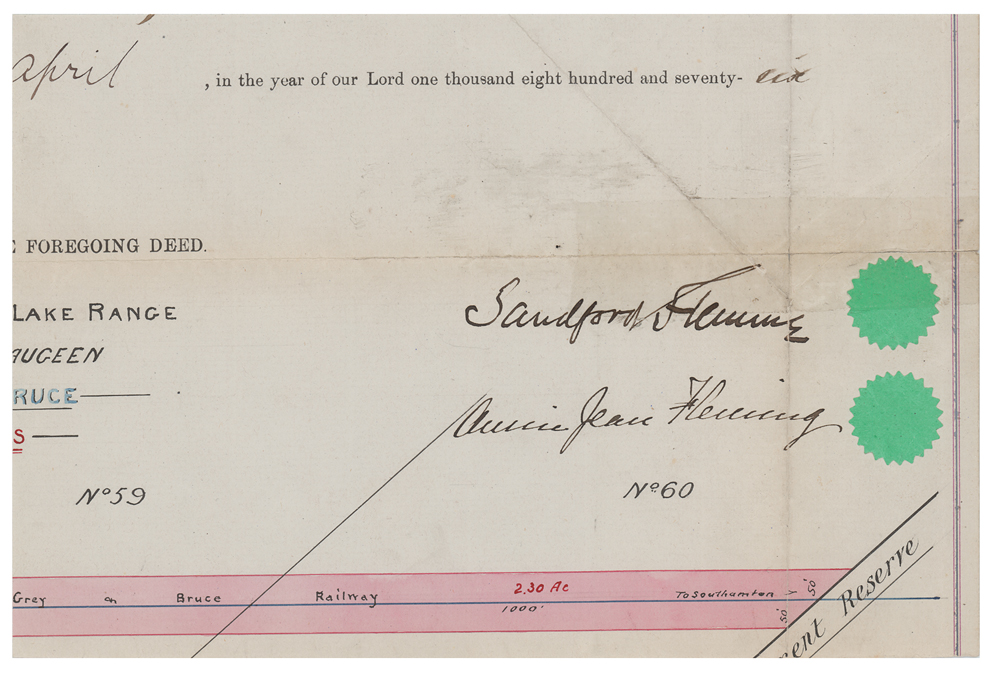 April , in the year of our Lord one thousand eight hundred and seventy- six
FOREGOING DEED.
LAKE RANGE
Sandford Fleming
AUGEEN
RUCE
Annie Jean Fleming
S
No 59
No 60
Grey an Bruce Railway 2.30 Ac To Southamton 50' 50'
1000'
ent Reserve